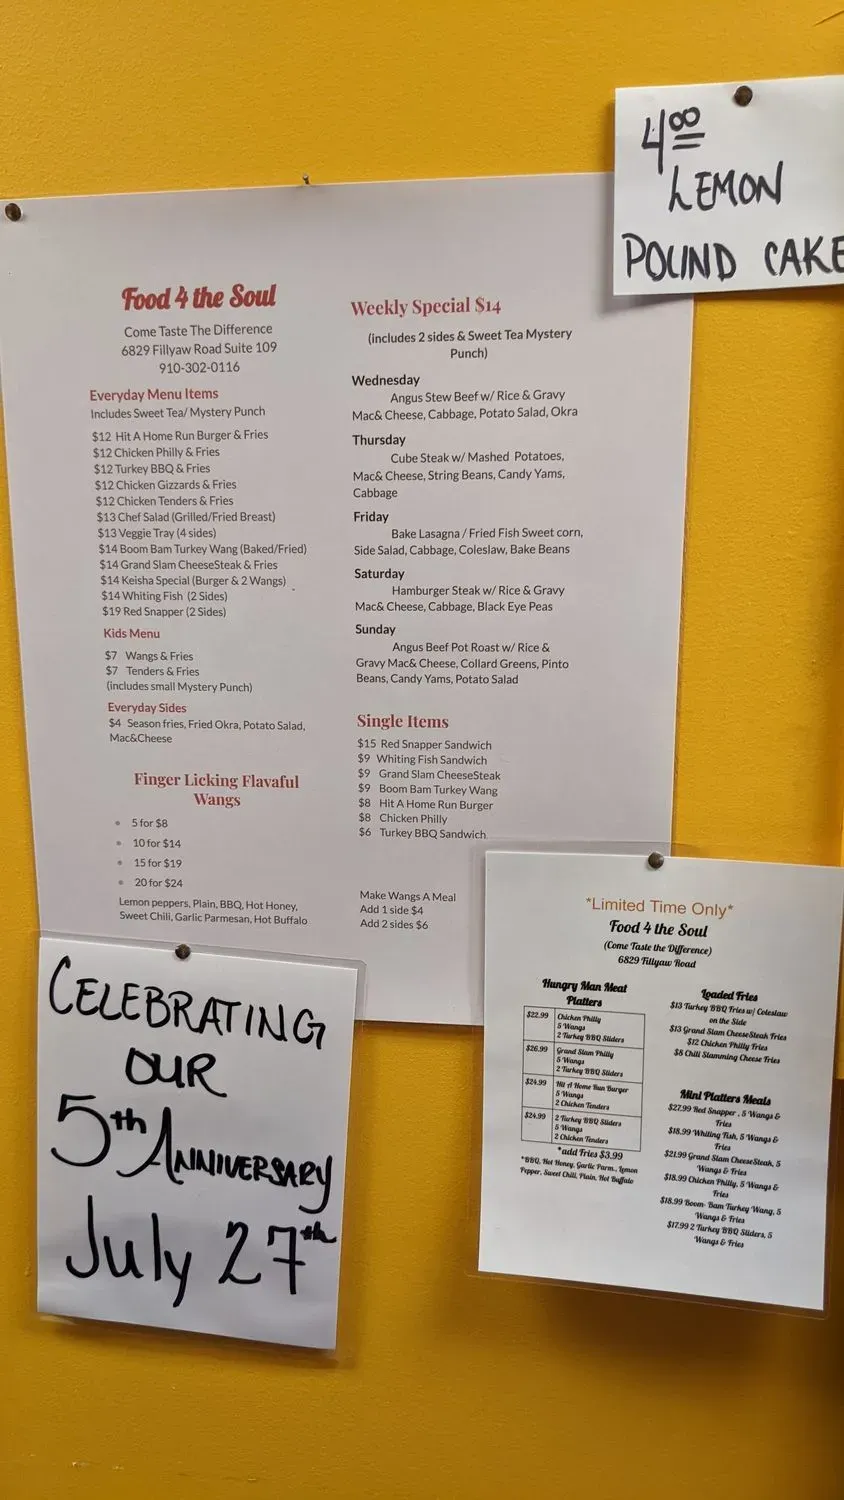 4.00
LEMON
POUND CAKE
Food 4 the Soul
Come Taste The Difference
6829 Fillyaw Road Suite 109
910-302-0116
Everyday Menu Items
Includes Sweet Tea/ Mystery Punch
$12 Hit A Home Run Burger & Fries
$12 Chicken Philly & Fries
$12 Turkey BBQ & Fries
$12 Chicken Gizzards & Fries
$12 Chicken Tenders & Fries
$13 Chef Salad (Grilled/Fried Breast)
$13 Veggie Tray (4 sides)
$14 Boom Bam Turkey Wang (Baked/Fried)
$14 Grand Slam CheeseSteak & Fries
$14 Keisha Special (Burger & 2 Wangs)
$14 Whiting Fish (2 Sides)
$19 Red Snapper (2 Sides)
Kids Menu
$7 Wangs & Fries
$7 Tenders & Fries
(includes small Mystery Punch)
Everyday Sides
$4 Season fries, Fried Okra, Potato Salad,
Mac&Cheese
Finger Licking Flavaful
Wangs
• 5 for $8
• 10 for $14
• 15 for $19
• 20 for $24
Lemon peppers, Plain, BBQ, Hot Honey,
Sweet Chili, Garlic Parmesan, Hot Buffalo
Weekly Special $14
(includes 2 sides & Sweet Tea Mystery
Punch)
Wednesday
Angus Stew Beef w/ Rice & Gravy
Mac& Cheese, Cabbage, Potato Salad, Okra
Thursday
Cube Steak w/ Mashed Potatoes,
Mac& Cheese, String Beans, Candy Yams,
Cabbage
Friday
Bake Lasagna / Fried Fish Sweet corn,
Side Salad, Cabbage, Coleslaw, Bake Beans
Saturday
Hamburger Steak w/ Rice & Gravy
Mac& Cheese, Cabbage, Black Eye Peas
Sunday
Angus Beef Pot Roast w/ Rice &
Gravy Mac& Cheese, Collard Greens, Pinto
Beans, Candy Yams, Potato Salad
Single Items
$15 Red Snapper Sandwich
$9 Whiting Fish Sandwich
$9 Grand Slam CheeseSteak
$9 Boom Bam Turkey Wang
$8 Hit A Home Run Burger
$8 Chicken Philly
$6 Turkey BBQ Sandwich
Make Wangs A Meal
Add 1 side $4
Add 2 sides $6
CELEBRATING
OUR
5th ANNIVERSARY
July 27th
*Limited Time Only*
Food 4 the Soul
(Come Taste the Difference)
6829 Fillyaw Road
Hungry Man Meat
Platters
$22.99 Chicken Philly
5 Wangs
2 Turkey BBQ Sliders
$26.99 Grand Slam Philly
5 Wangs
2 Turkey BBQ Sliders
$24.99 Hit A Home Run Burger
5 Wangs
2 Chicken Tenders
$24.99 2 Turkey BBQ Sliders
5 Wangs
2 Chicken Tenders
*add Fries $3.99
*BBQ, Hot Honey, Garlic Parm., Lemon
Pepper, Sweet Chili, Plain, Hot Buffalo
Loaded Fries
$13 Turkey BBQ Fries w/ Coleslaw
on the Side
$13 Grand Slam CheeseSteak Fries
$12 Chicken Philly Fries
$8 Chili Slamming Cheese Fries
Mini Platters Meals
$27.99 Red Snapper , 5 Wangs &
Fries
$18.99 Whiting Fish, 5 Wangs &
Fries
$21.99 Grand Slam CheeseSteak, 5
Wangs & Fries
$18.99 Chicken Philly, 5 Wangs &
Fries
$18.99 Boom- Bam Turkey Wang, 5
Wangs & Fries
$17.99 2 Turkey BBQ Sliders, 5
Wangs & Fries